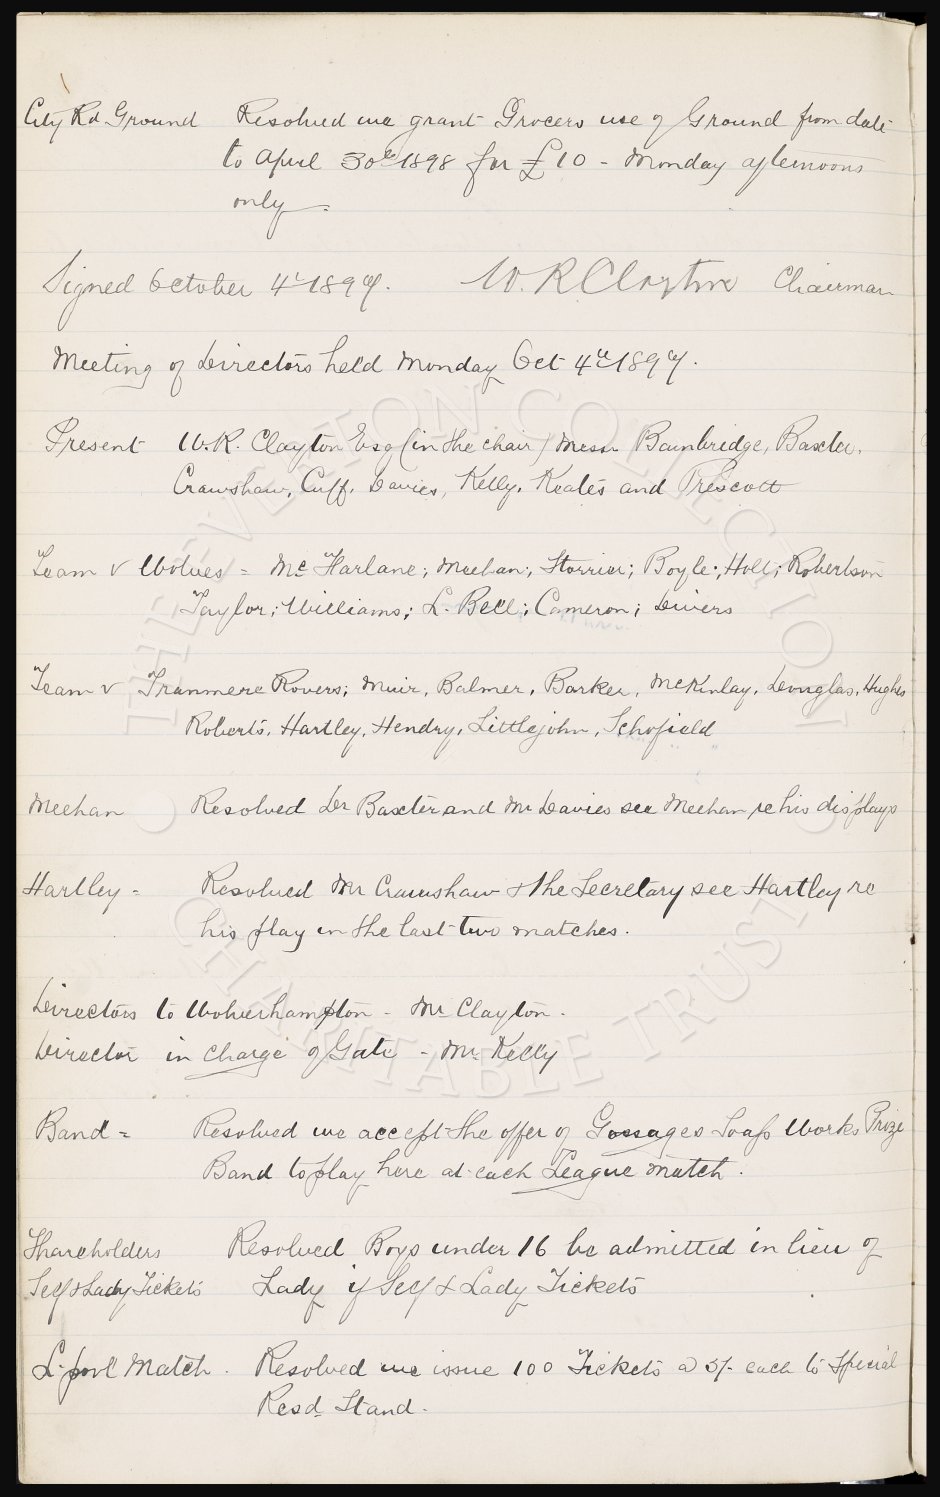 City Rd Ground Resolved we grant Grocers use of Ground from date
to April 30th 1898 for £10 - Monday afternoons
only.
Signed October 4th 1897. W. R Clayton Chairman
Meeting of Directors held Monday Oct 4th 1897.
Present W. R. Clayton Esq (in the chair) Messrs Bainbridge, Baxter,
Crawshaw, Cuff, Davies, Kelly, Keates and Prescott
Team v Wolves = McFarlane; Meehan; Storrier; Boyle; Holt; Robertson
Taylor; Williams; L. Bell; Cameron; Divers
Team v Tranmere Rovers; Muir, Balmer, Barker, McKinlay, Douglas, Hughes
Roberts, Hartley, Hendry, Littlejohn, Schofield
Meehan Resolved Dr Baxter and Mr Davies see Meehan re his displays
Hartley - Resolved Mr Crawshaw & the Secretary see Hartley re
his play in the last two matches.
Directors to Wolverhampton - Mr Clayton.
Director in charge of Gate - Mr Kelly
Band = Resolved we accept the offer of Gossages Soap Works Prize
Band to play here at each League match.
Shareholders Resolved Boys under 16 be admitted in lieu of
Self & Lady Tickets Lady if Self & Lady Tickets
L.pool Match. Resolved we issue 100 Tickets @ 3/- each to Special
Resd Stand.
THE EVERTON COLLECTION
CHARITABLE TRUST